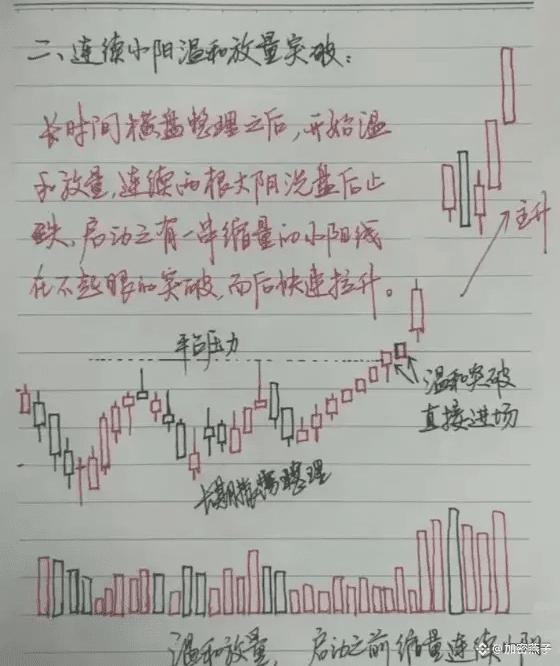 二、连续小阳温和放量突破：
长时间横盘整理之后，开始温
和放量，连续两根大阴洗盘后止
跌，启动之有一串缩量的小阳线
在不起眼的突破，而后快速拉升。
主升
平台压力
温和突破
直接进场
长期横盘整理
温和放量，启动之前缩量连续小阳
@加密燕子